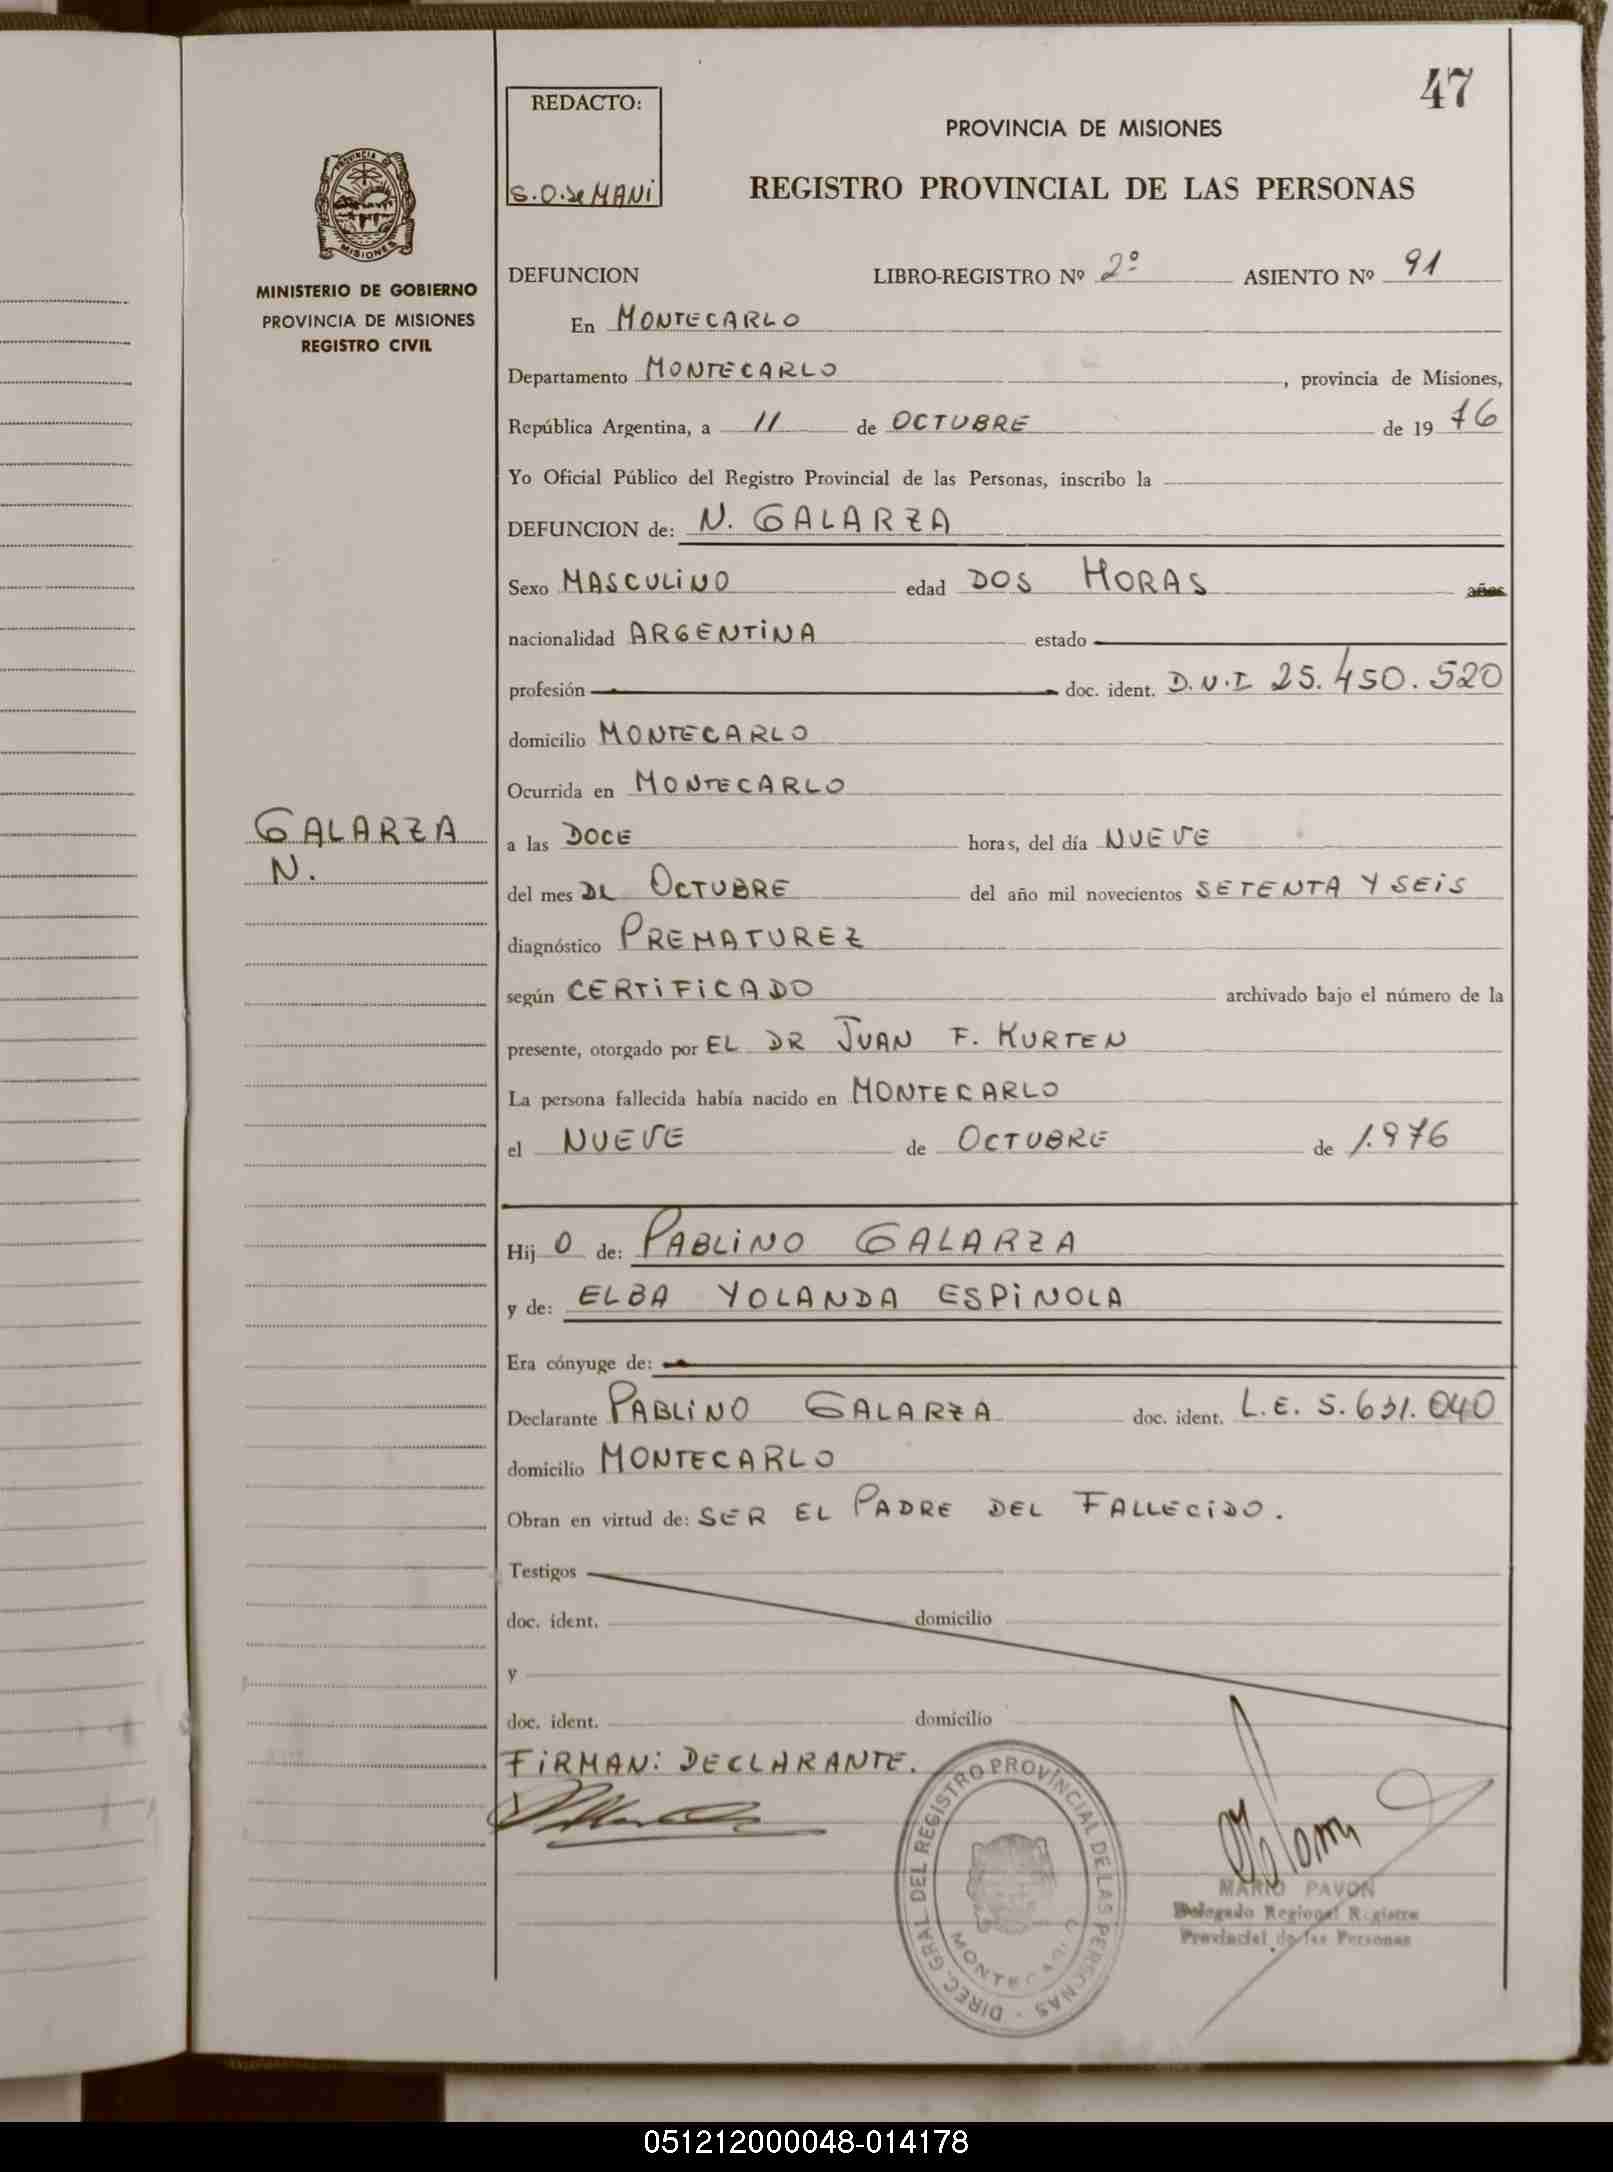 47
REDACTO:
S.O. de MANI
PROVINCIA DE MISIONES
REGISTRO PROVINCIAL DE LAS PERSONAS
PROVINCIA DE MISIONES
MINISTERIO DE GOBIERNO
PROVINCIA DE MISIONES
REGISTRO CIVIL
DEFUNCION LIBRO-REGISTRO Nº 2º ASIENTO Nº 91
En MONTECARLO
Departamento MONTECARLO , provincia de Misiones,
República Argentina, a 11 de OCTUBRE de 19 76
Yo Oficial Público del Registro Provincial de las Personas, inscribo la
DEFUNCION de: N. GALARZA
Sexo MASCULINO edad DOS HORAS años
nacionalidad ARGENTINA estado
profesión doc. ident. D.N.I. 25.450.520
domicilio MONTECARLO
Ocurrida en MONTECARLO
GALARZA
N.
a las DOCE horas, del día NUEVE
del mes DE OCTUBRE del año mil novecientos SETENTA Y SEIS
diagnóstico PREMATUREZ
según CERTIFICADO archivado bajo el número de la
presente, otorgado por EL DR JUAN F. KURTEN
La persona fallecida había nacido en MONTECARLO
el NUEVE de OCTUBRE de 1.976
Hij O de: PABLINO GALARZA
y de: ELBA YOLANDA ESPINOLA
Era cónyuge de:
Declarante PABLINO GALARZA doc. ident. L.E. 5.631.040
domicilio MONTECARLO
Obran en virtud de: SER EL PADRE DEL FALLECIDO.
Testigos
doc. ident. domicilio
y
doc. ident. domicilio
FIRMAN: DECLARANTE.
DIREC. GRAL. DEL REGISTRO PROVINCIAL DE LAS PERSONAS
MONTECARLO
MARIO PAVON
Delegado Regional Registro
Provincial de las Personas
051212000048-014178